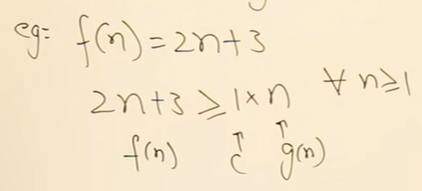 eg= f(n) = 2n+3
2n+3 ≥ 1×n ∀ n≥1
f(n) ↑ c ↑ g(n)